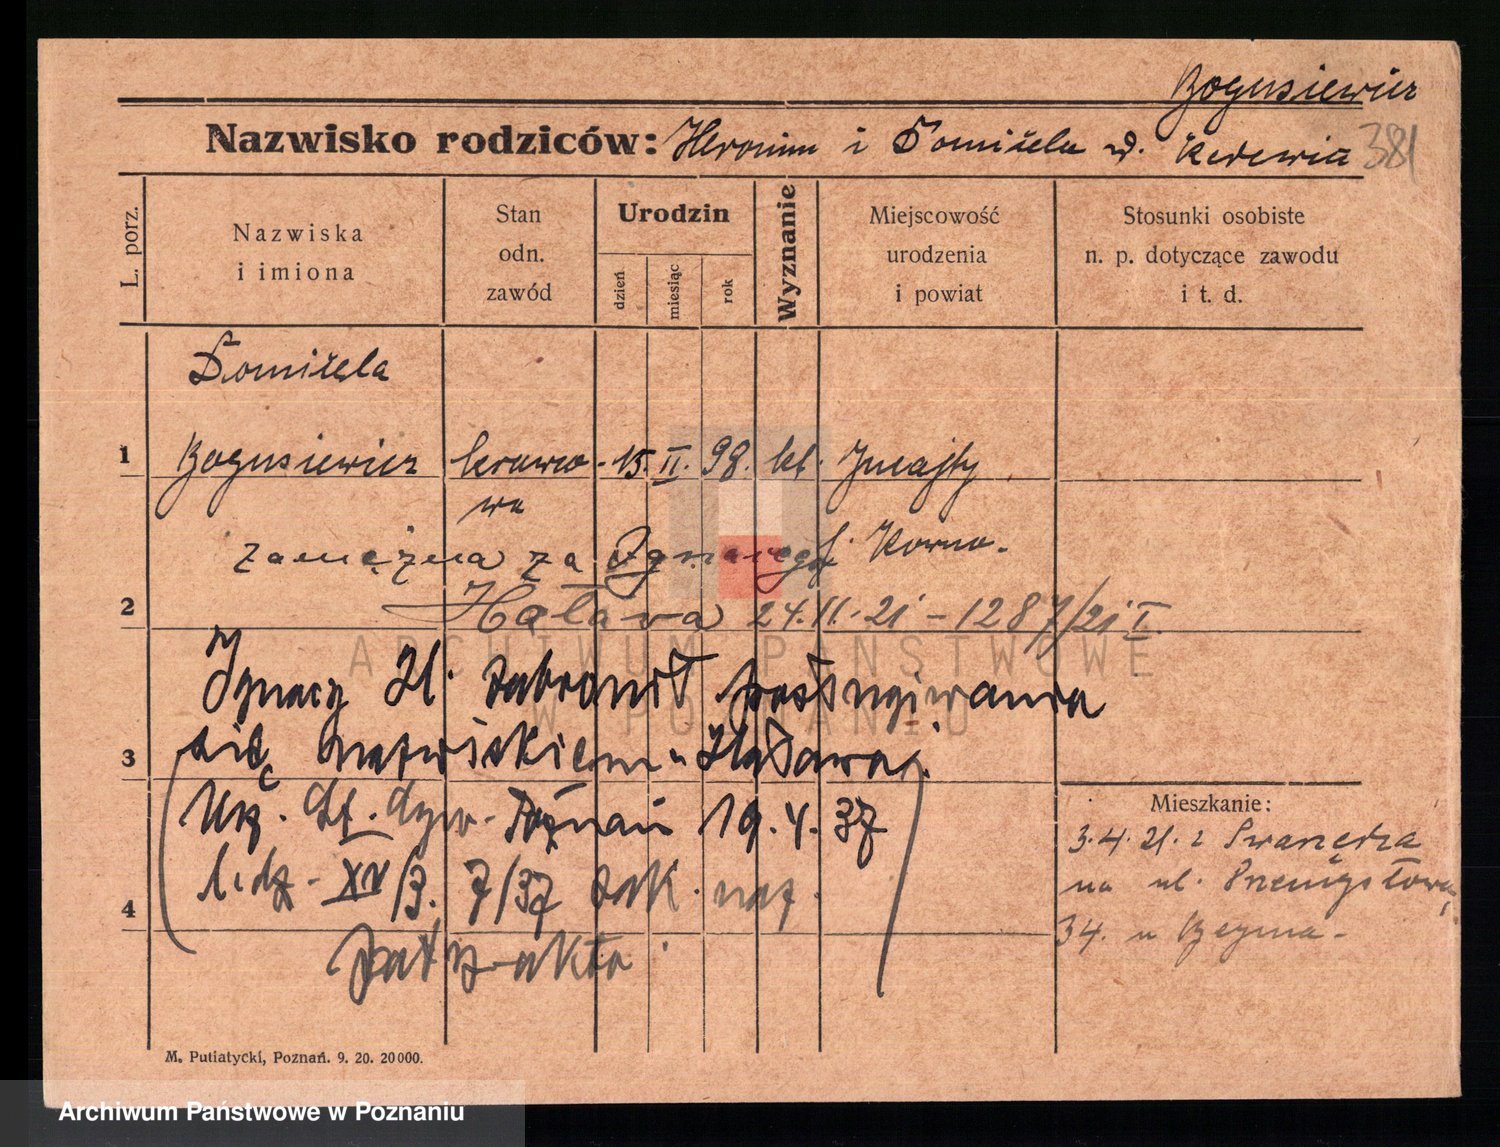 Bogusiewicz
Nazwisko rodziców: Heronim i Domicela z d.
381
L. porz.
Nazwiska
i imiona
Stan
odn.
zawód
Urodzin
dzień
miesiąc
rok
Wyznanie
Miejscowość
urodzenia
i powiat
Stosunki osobiste
n. p. dotyczące zawodu
i t. d.
Domicela
1 Bogusiewicz krawco- 15. II. 98. kt.
wa
zamężna za Ignacego f. Kowno.
2 Haława 24.11.21 - 1287/21 I.
Ignacy H. zabronił posługiwania
3 się nazwiskiem „Haława”.
Poznań 19.4.37
l. dz. XV/3. 7/37
4
patrz akta
Mieszkanie:
3.4.21. z Swarzędza
na ul. Przemysłową
34. u
M. Putiatycki, Poznań. 9. 20. 20000.
ARCHIWUM PAŃSTWOWE
W POZNANIU
Archiwum Państwowe w Poznaniu